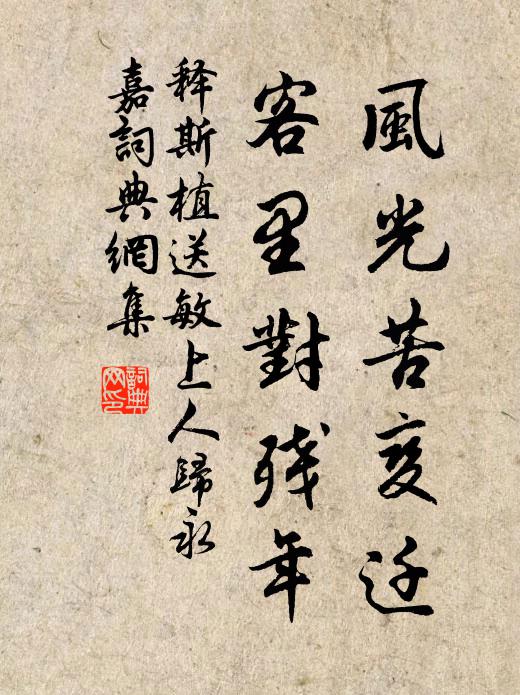 風光苦变迁
客里對残年
释斯植送敏上人歸永
嘉詞典網集
詞典网印